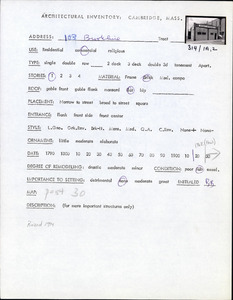 ARCHITECTURAL INVENTORY: CAMBRIDGE, MASS.
ADDRESS: 103 Brookline Tract
314/1A,2
USE: Residential commercial religious
TYPE: single double row 2 deck 3 deck double 3d tenement Apart.
STORIES: 1 2 3 4 MATERIAL: Frame Brick Wood, compo
ROOF: gable front gable flank mansard flat hip
PLACEMENT: Narrow to street broad to street square
ENTRANCE: flank front side front center
STYLE:
ORNAMENT: little moderate elaborate
DATE: 1790 1800 10 20 30 40 50 60 70 80 90 1900 10 20 30
DEGREE OF REMODELING: drastic moderate minor CONDITION: poor fair excel.
IMPORTANCE TO SETTING: detrimental none moderate great INITIALED
MAP: post 30
DESCRIPTION: (for more important structures only)